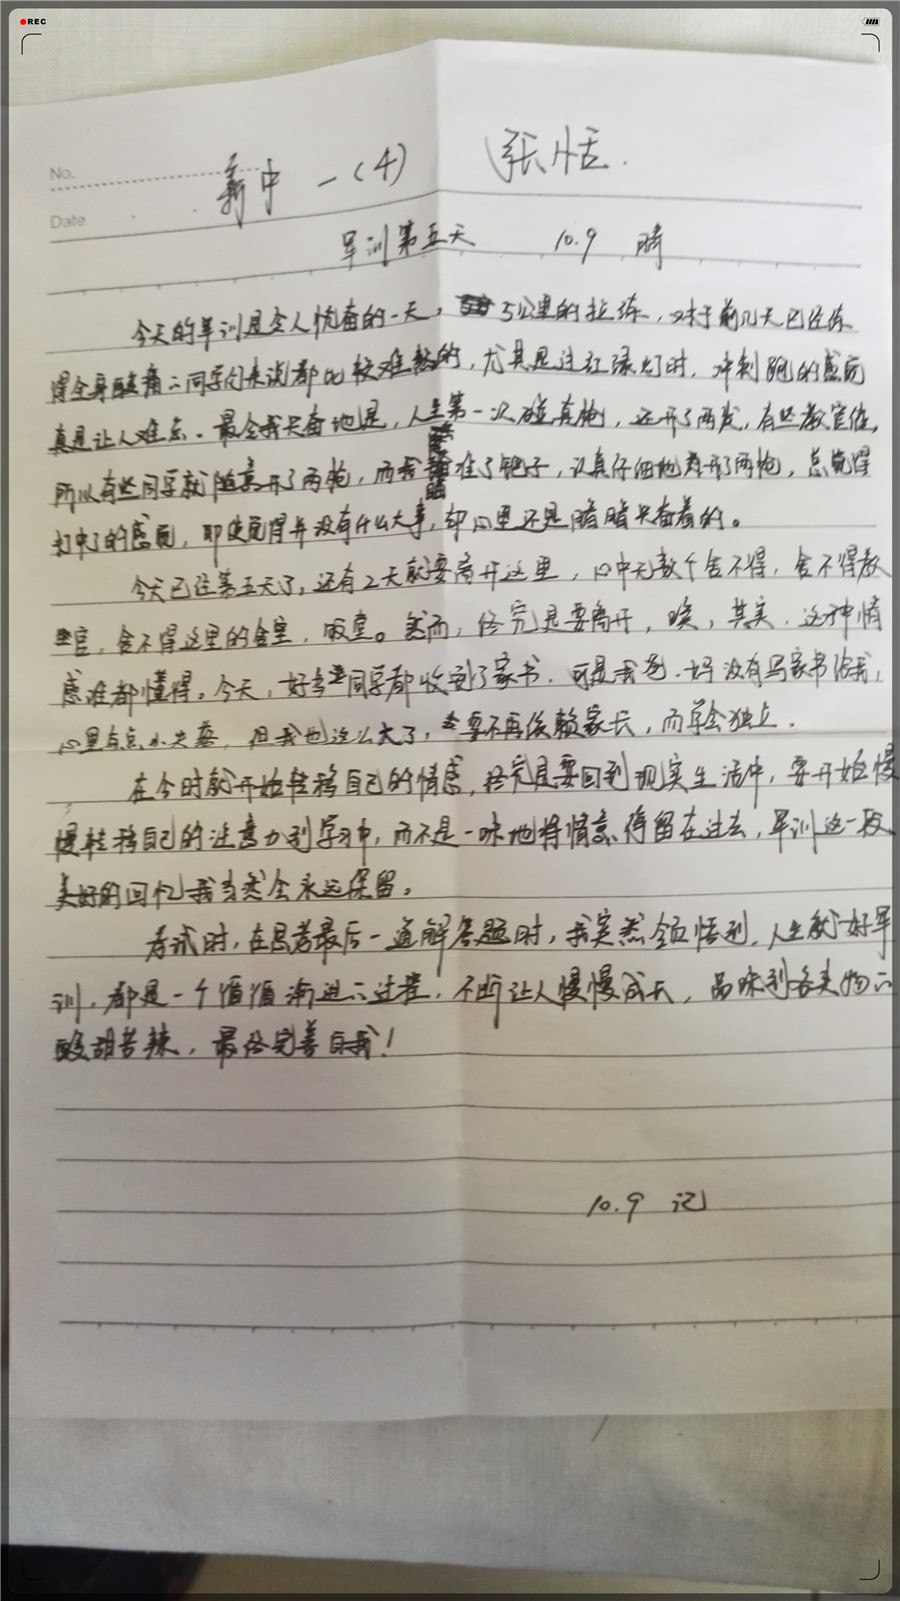 REC
No.
新中 一(4) 张恬.
Date
军训第五天 10.9 晴
今天的军训是令人忧奋的一天, 5公里的拉练,对于前几天已经练
得全身酸痛的同学们来说都比较难熬的,尤其是过红绿灯时,冲刺跑的感觉
真是让人难忘。最令我兴奋地是,人生第一次碰真枪,还开了两发,有些教官催,
所以有些同学就随意开了两枪,而我 准了靶子,认真仔细地 开了两枪,总觉得
打中了的感觉,即使觉得并没有什么大事,却心里还是暗暗兴奋着的。
今天已经第五天了,还有2天就要离开这里,心中无数个舍不得,舍不得教
官,舍不得这里的舍室,饭堂。然而,终究是要离开,唉,其实,这种情
感谁都懂得。今天,好多同学都收到了家书,可是我爸、妈没有写家书给我,
心里有点小失落,但我也这么大了,要不再依赖家长,而学会独立.
在今时就开始转移自己的情感,终究是要回到现实生活中,要开始慢
慢转移自己的注意力到学习中,而不是一味地将情意停留在过去,军训这一段
美好的回忆我当然会永远保留。
考试时,在思考最后一道解答题时,我突然领悟到,人生就好军
训,都是一个循循渐进的过程,不断让人慢慢成长,品味到各类物的
酸甜苦辣,最终完善自我!
10.9 记